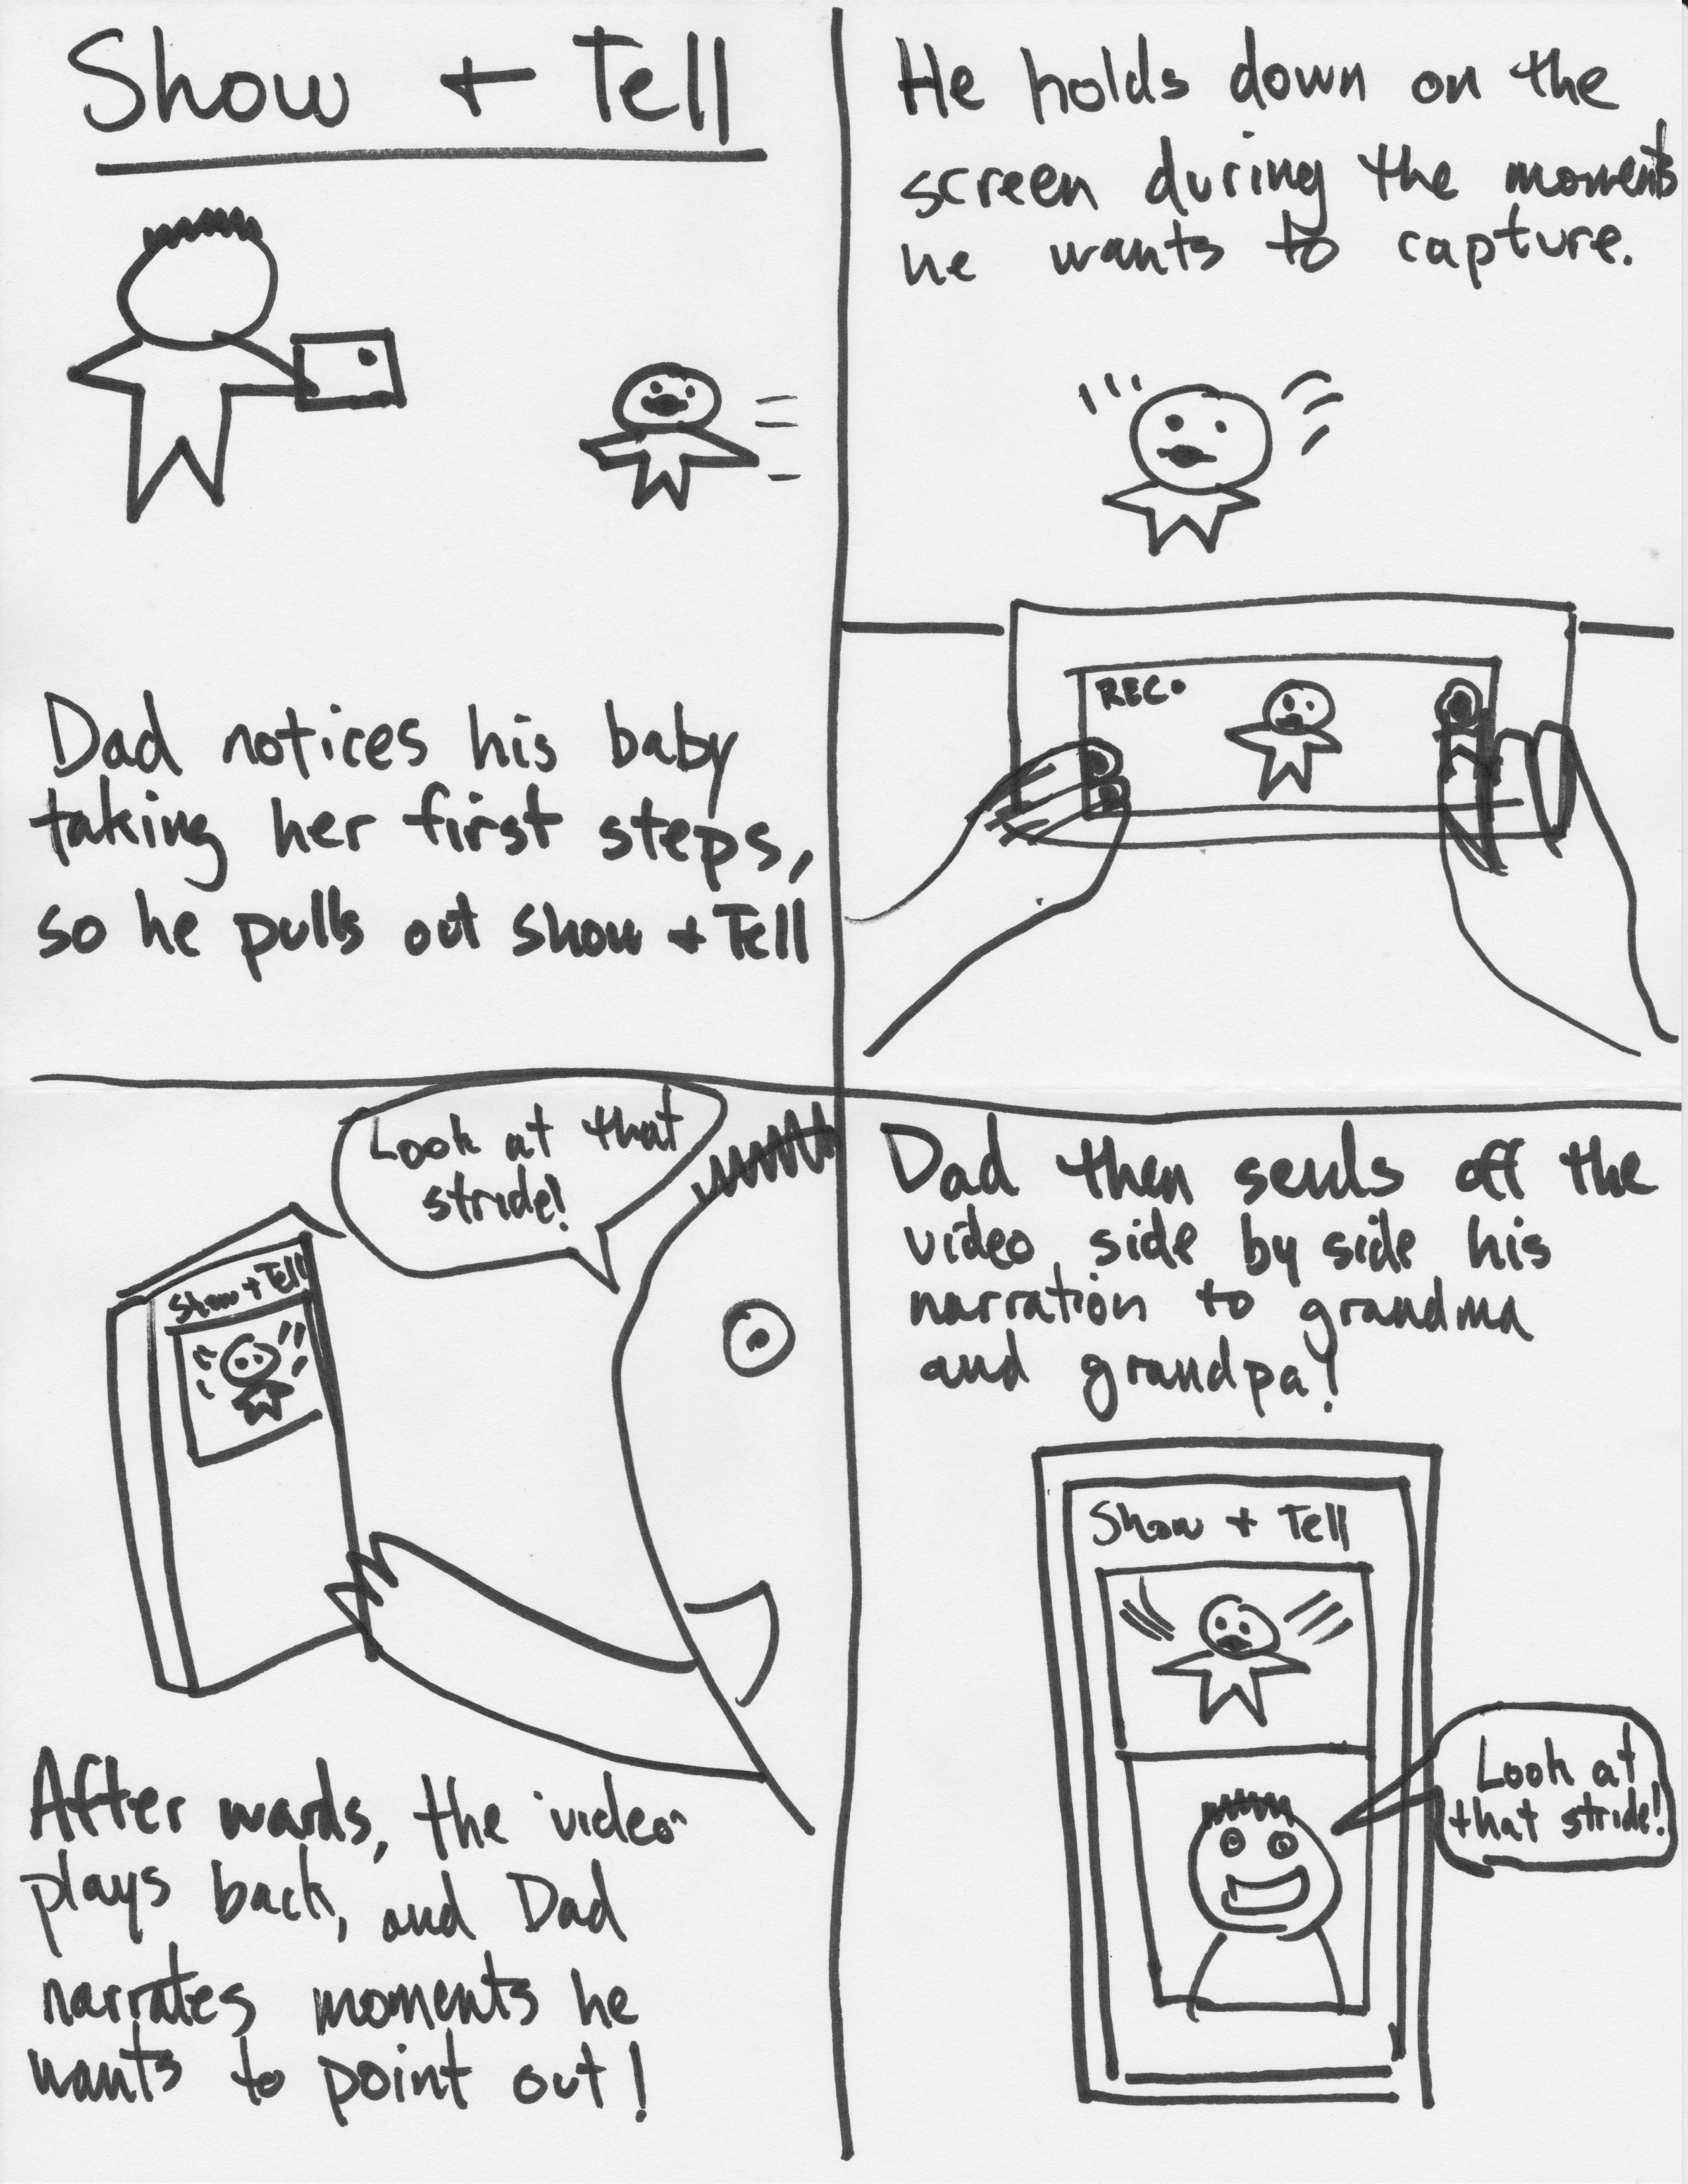 Show + Tell
Dad notices his baby
taking her first steps,
so he pulls out Show + Tell
He holds down on the
screen during the moments
he wants to capture.
REC
Look at that
stride!
Show + Tell
After wards, the video
plays back, and Dad
narrates moments he
wants to point out!
Dad then sends off the
video side by side his
narration to grandma
and grandpa!
Show + Tell
Look at
that stride!